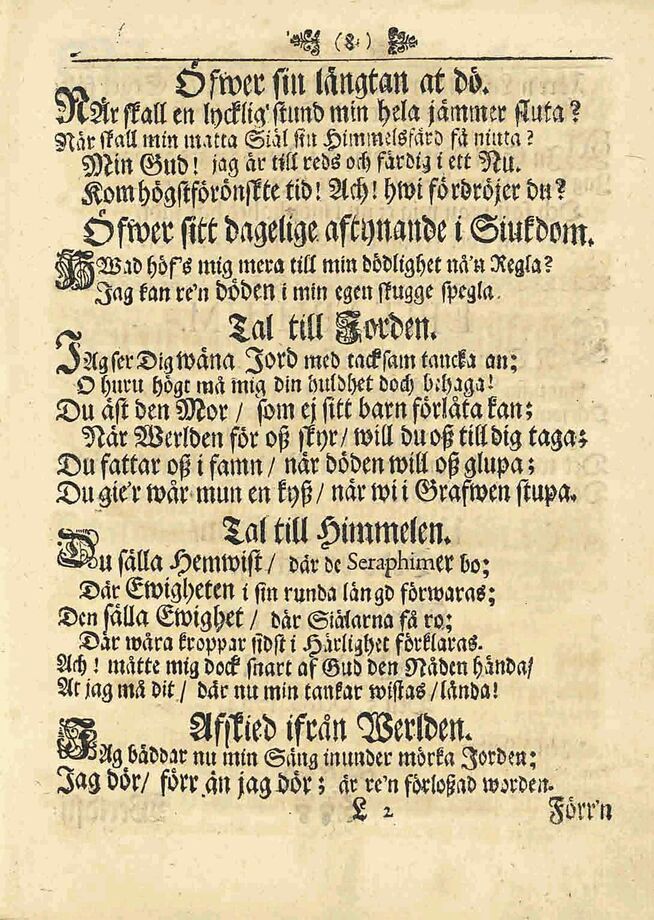 (8.)
Öfwer sin längtan at dö.
NÄr skall en lycklig stund min hela jämmer sluta?
När skall min matta Siäl sin Himmelsfärd få niuta?
Min Gud! jag är till reds och färdig i ett Nu.
Kom högstförönskte tid! Ach! hwi fördröjer du?
Öfwer sitt dagelige aftynande i Siukdom.
HWad höf's mig mera till min dödlighet nå'n Regla?
Jag kan re'n döden i min egen skugge spegla.
Tal till Jorden.
JAg ser Dig wäna Jord med tacksam tancka an;
O huru högt må mig din huldhet doch behaga!
Du äst den Mor / som ej sitt barn förlåta kan;
När Werlden för oß skyr / will du oß till dig taga;
Du fattar oß i famn / när döden will oß glupa;
Du gie'r wår mun en kyß / när wi i Grafwen stupa.
Tal till Himmelen.
Du sälla Hemwist / där de Seraphimer bo;
Där Ewigheten i sin runda längd förwaras;
Den sälla Ewighet / där Siälarna få ro;
Där wåra kroppar sidst i Härlighet förklaras.
Ach! måtte mig dock snart af Gud den Nåden hända/
At jag må dit / där nu min tankar wistas / lända!
Afskied ifrån Werlden.
JAg bäddar nu min Säng inunder mörka Jorden;
Jag dör / förr än jag dör; är re'n förloßad worden.
L 2 Förr'n